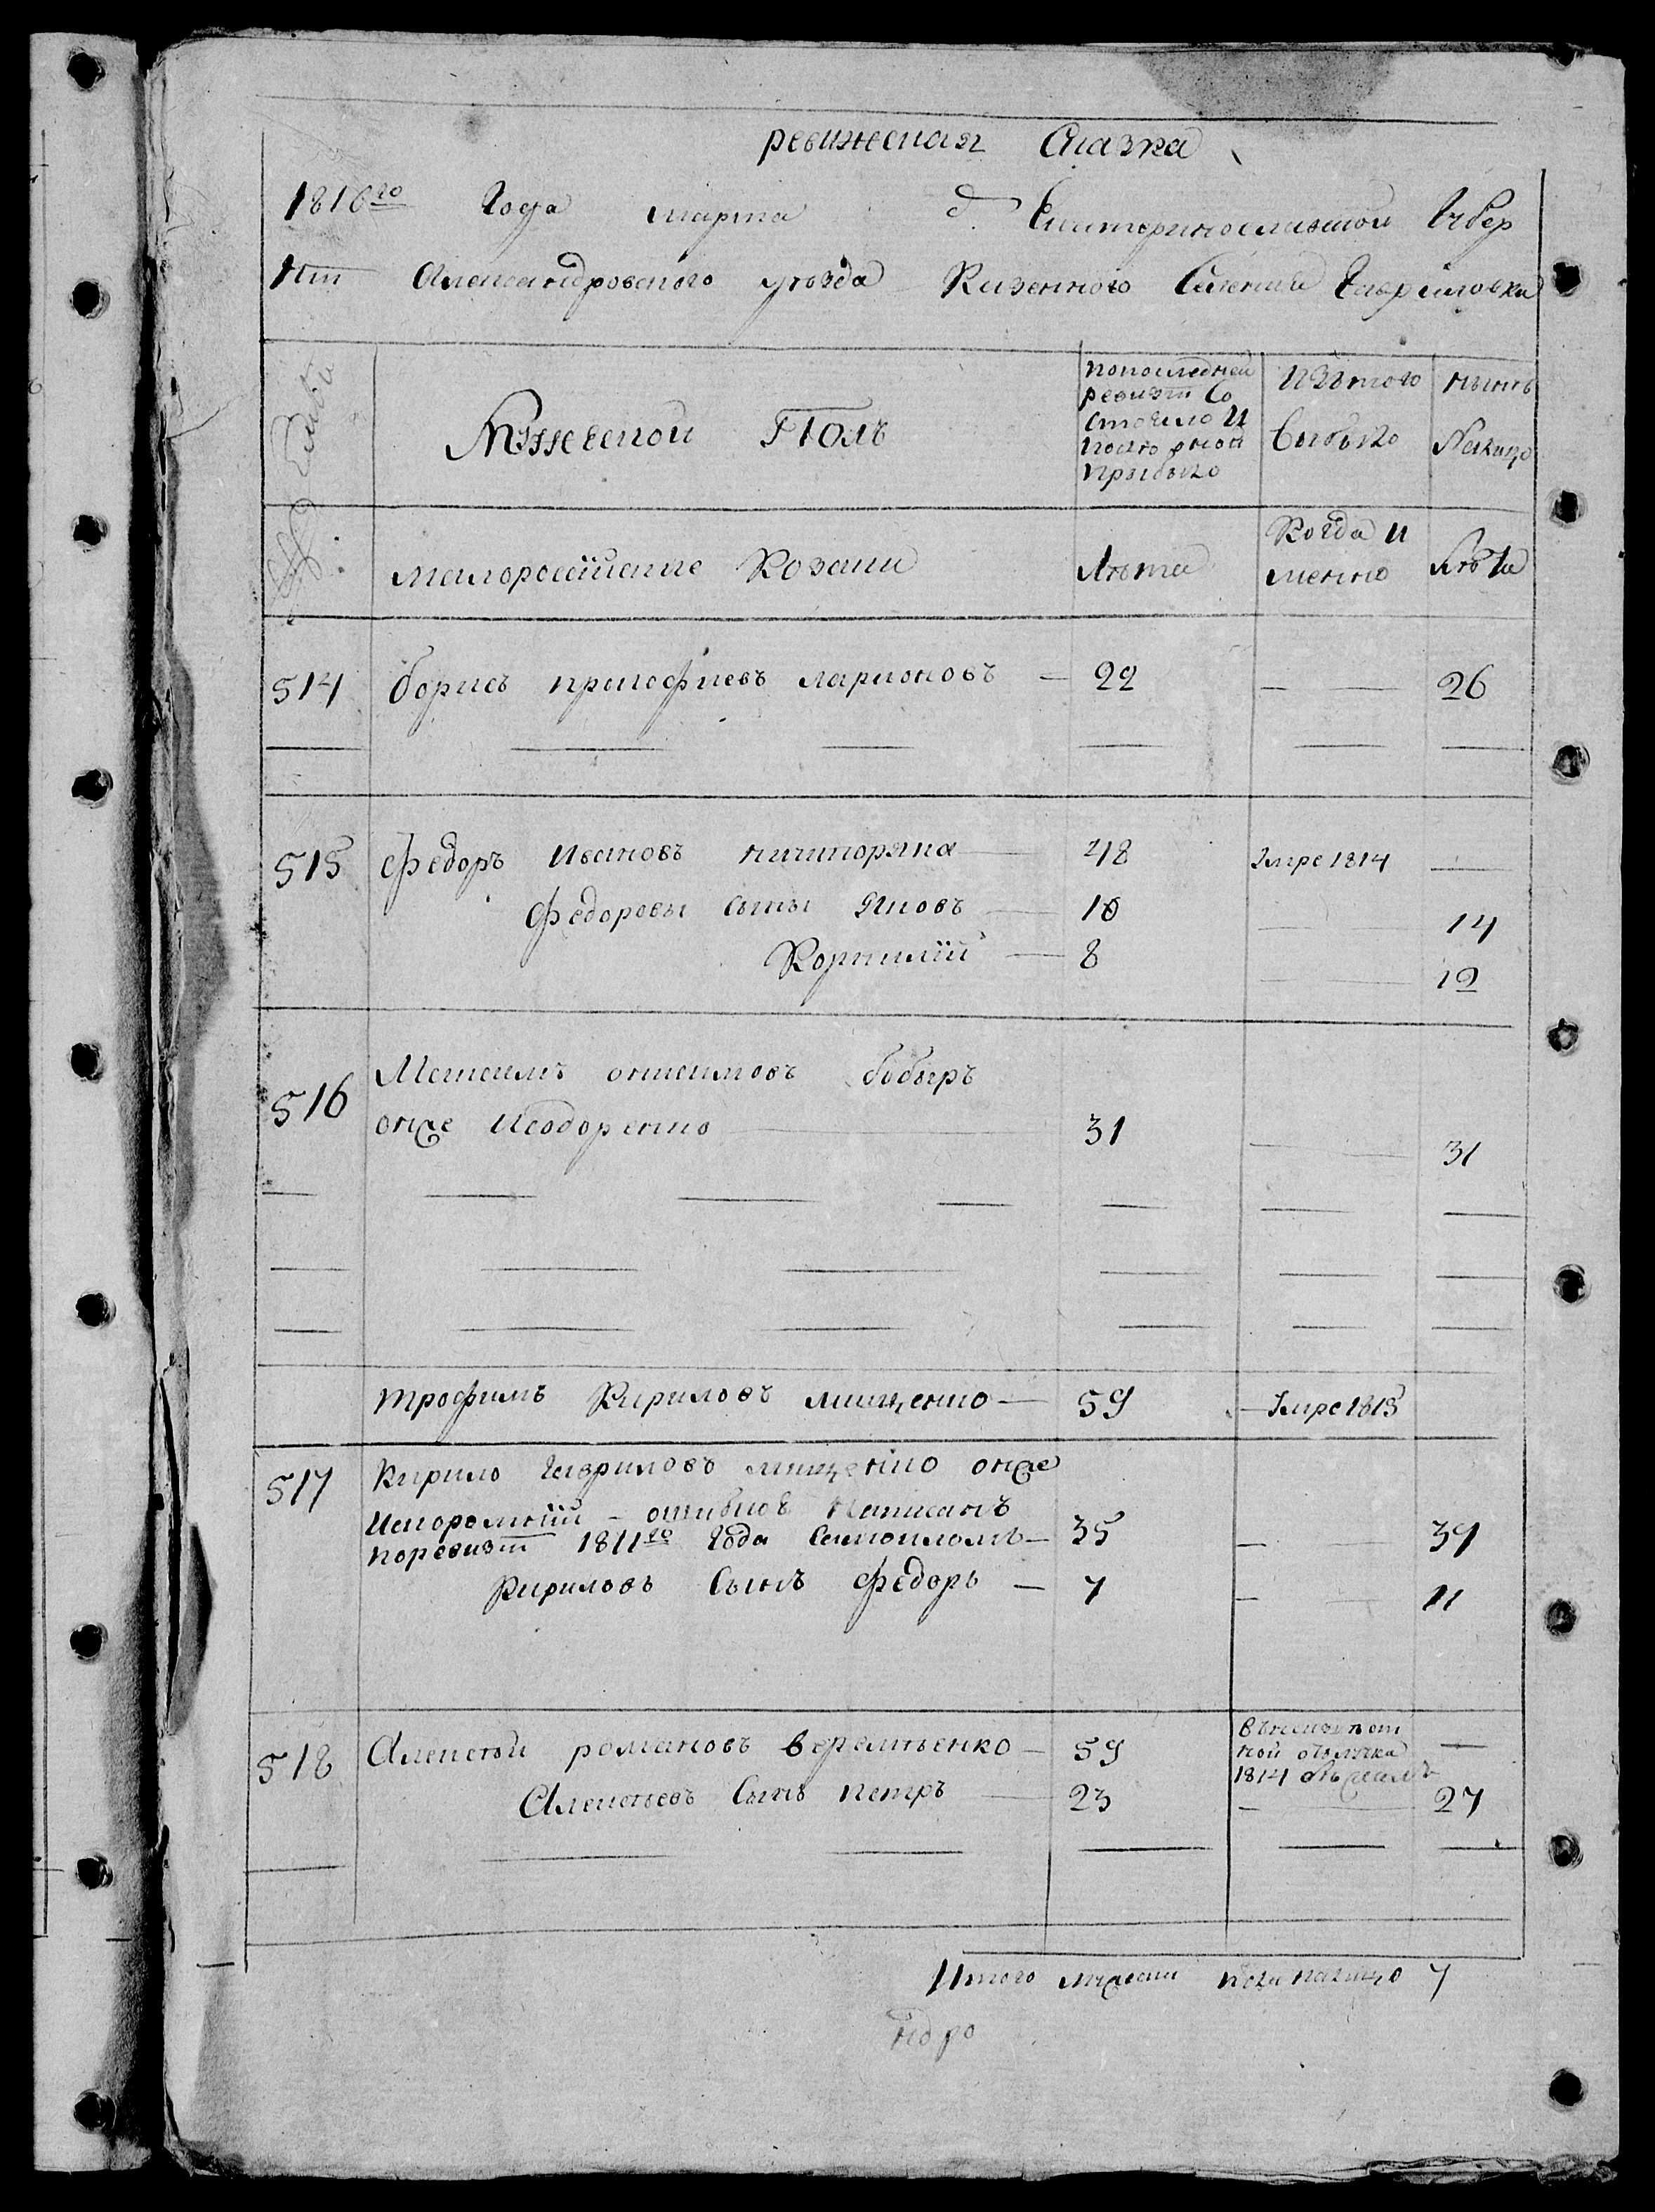 ревижская Сказка
1816го Года марта д. Екатеринославской Губер
нiи Александровского уѣзда Казенного Селенiя Гавриловки
Мужескои Полъ
попоследней
ревизiи Со
стояло и
после оной
прибыло
Изътого
Выбыло
нынѣ
Налицо
малоросїйские Козаки
Лѣта
Когда и
менно
Лѣта
514 борисъ прокофиевъ ларионовъ — 22 — — 26
515 федоръ Ивановъ ничипоряка — 48 Умре 1814 —
федоровы сыны Яковъ — 10 — 14
Корнилїй — 8 — 12
516 Максимъ онисимовъ бобыръ
онже Исодоренко — 31 — 31
трофимъ Кириловъ мищенко — 59 — Умре 1813
517 Кирило Гавриловъ мищенко онже
Искоромнїй - ошибкоѣ Написанъ
поревизiи 1811го Года Самоиломъ — 35 — 39
Кириловъ Сынъ федоръ — 7 — 11
518 Алексѣй романовъ веремѣенко — 59
1814
—
Алексѣевъ Сынъ петръ — 23 — 27
Итого мужеска пола налицо 7